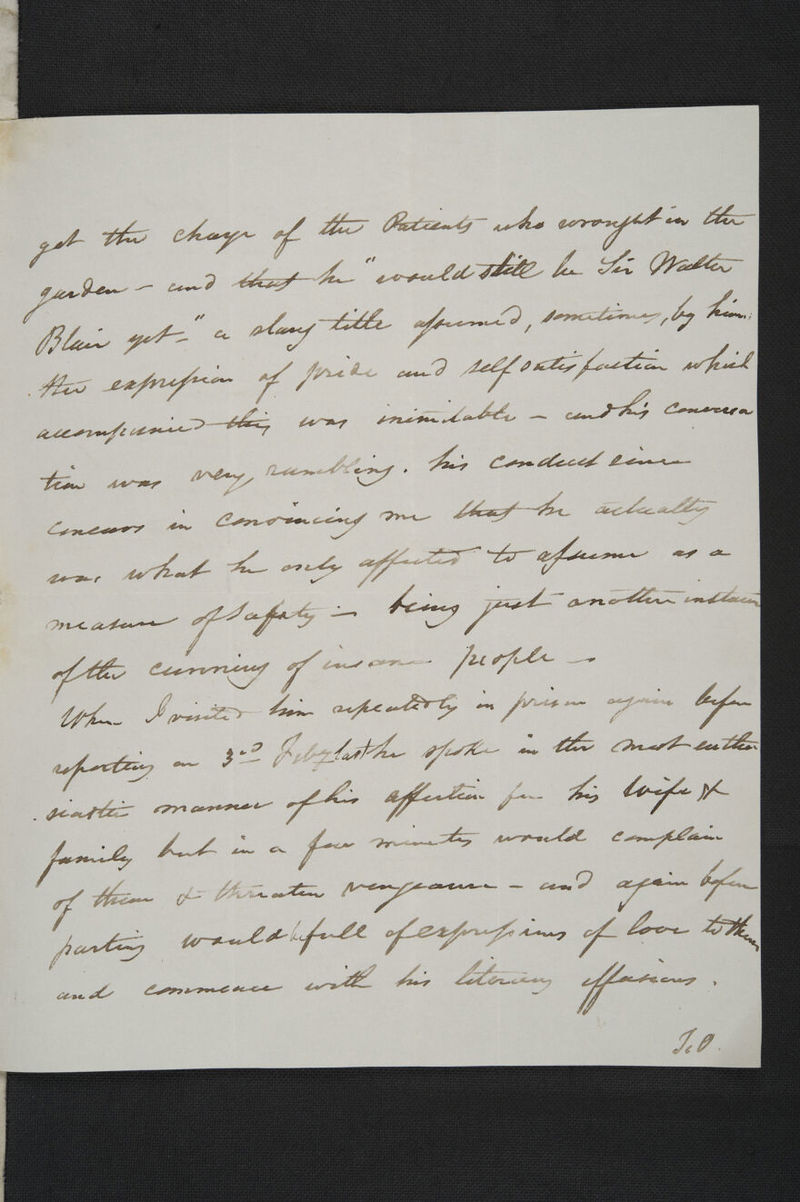 get the charge of the Patients who wrought in the
garden – and that he "would still be Sir Walter
Blair yet –" a slang title assumed, sometimes, by him:
the expression of pride and self satisfaction which
accompanied this was inimitable – and his conversa
tion was very rambling. his conduct since
concurs in convincing me that he actually
was what he only affected to assume as a
measure of safety – being just another instance
of the cunning of insane people –
When I visited him repeatedly in prison again before
reporting on 3rd Feby last he spoke in the most enthu
siastic manner of his affection for his wife &
family but in a few minutes would complain
of them & threaten vengeance – and again before
parting would be full of expressions of love to them
and commence with his literary effusions.